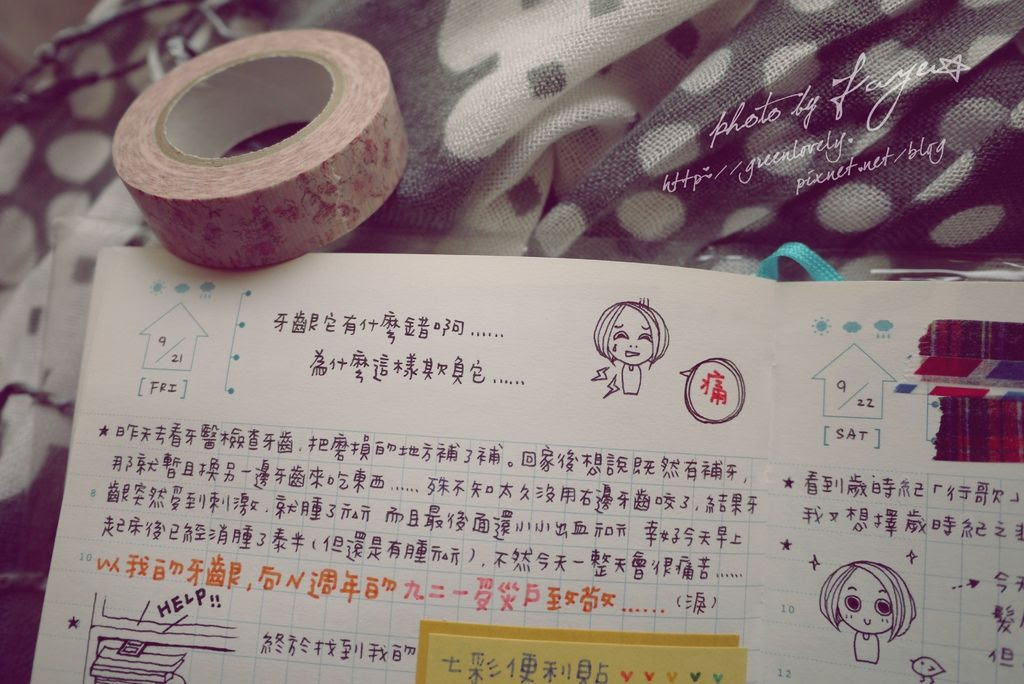 photo by Faye
http://greenlovely.
pixnet.net/blog
9/21
[FRI]
牙齦它有什麼錯啊……
為什麼這樣欺負它……
痛
★昨天去看牙醫檢查牙齒,把磨損的地方補了補。回家後想說既然有補牙,
那就暫且換另一邊牙齒來吃東西……殊不知太久沒用右邊牙齒咬了,結果牙
8
齦突然受到刺激,就腫了 而且最後面還小小出血 幸好今天早上
起床後已經消腫了泰半(但還是有腫),不然今天一整天會很痛苦……
10
以我的牙齦,向N週年的九二一受災戶致敬……(淚)
HELP!!
★
終於找到我的
七彩便利貼
9/22
[SAT]
★看到歲時紀「行歌」
我又想擇歲時紀之
★
今天
髮
但
10
12